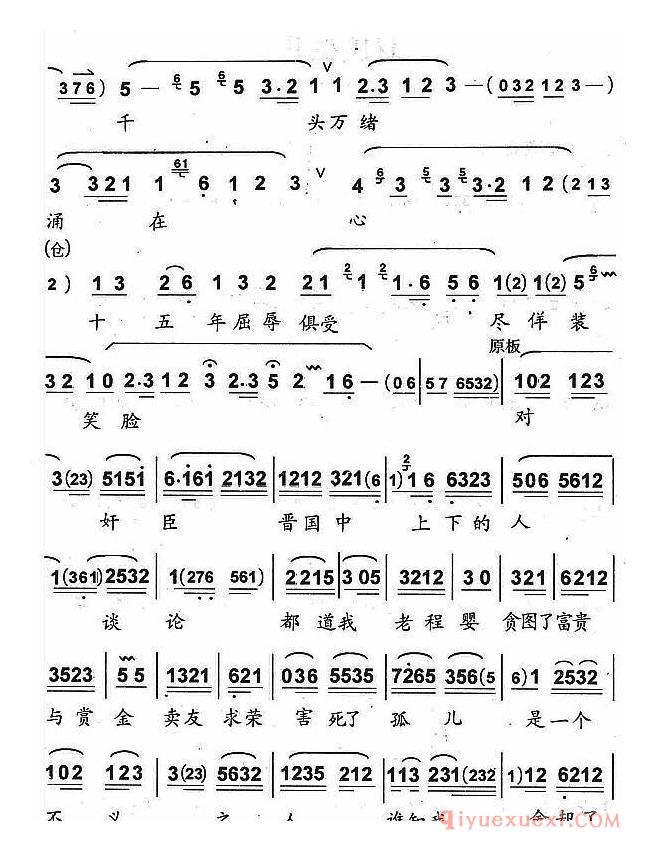 376) 5 — 6 5 6 5 3·2 1 1 2·3 1 2 3 —(032 12 3 —)
千 头万绪
3 321 1 61 6 1 2 3 4 6 3 5 3 5 3·2 1 2 (2 13
涌 在 心
(仓)
2) 1 3 2 6 1 3 2 21 2 1 2 1·6 5 6 1(2) 1(2) 5 6
十 五 年 屈 辱 俱受 尽 佯 装
原板
32 10 2·3 12 3 2·3 5 2 1 6 —(06 | 57 6532) | 102 123
笑 脸 对
3(23) 5151 | 6·161 2132 | 1212 321(6 | 1) 2 16 6323 | 506 5612
奸 臣 晋国中 上下的人
1(361) 2532 | 1(276 561) | 2215 3 05 | 3212 3 0 | 321 6212
谈 论 都道我 老程婴 贪图了富贵
3523 5 5 | 1321 621 | 036 5535 | 7265 356(5 | 6)1 2532
与赏金 卖友求荣 害死了 孤 儿 是一个
102 123 | 3(23) 5632 | 1235 212 | 113 231(232 | 1)12 6212
不 义 之 人 谁知我 舍却了
Qiyuexuexi.com